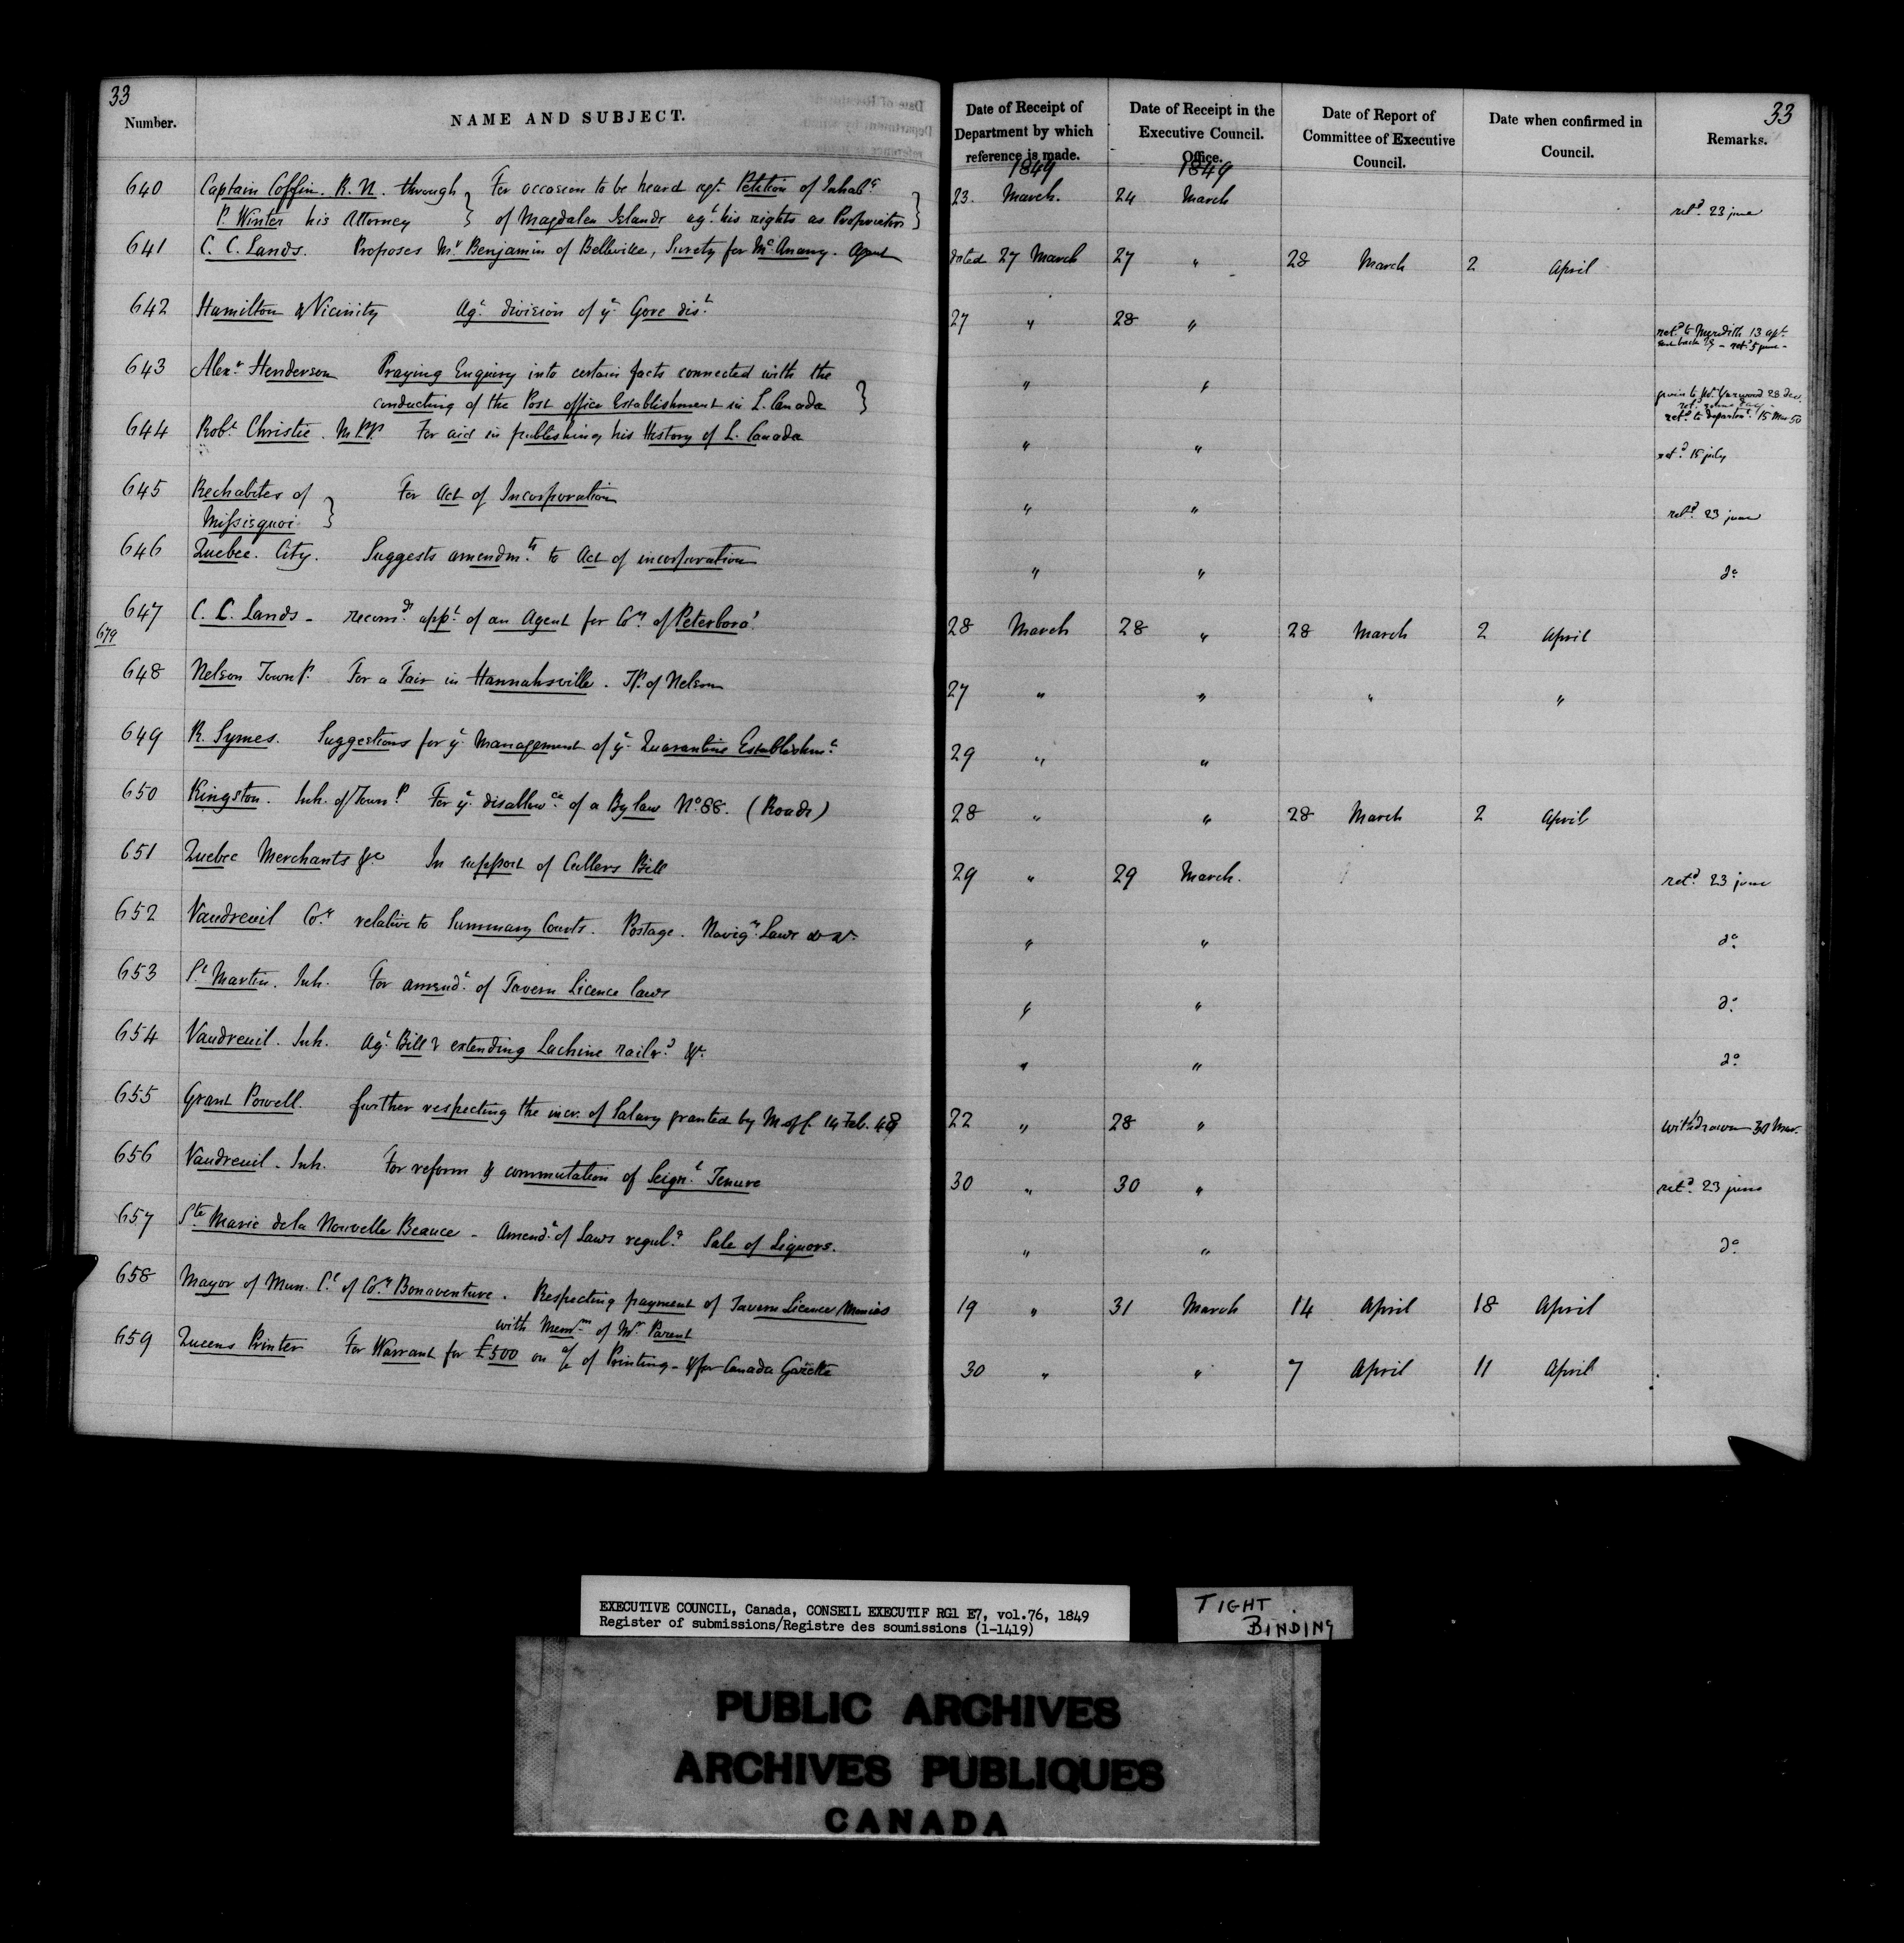 33
Number.
NAME AND SUBJECT.
Date of Receipt of Department by which reference is made.
Date of Receipt in the Executive Council. Office.
Date of Report of Committee of Executive Council.
Date when confirmed in Council.
Remarks.
33
1849 1849
640 Captain Coffin. R.N. through } For occasion to be heard agt. Petition of Inhabs } 23. March. 24 March
P. Winter his Attorney of Magdalen Islands agt. his rights as Proprietor retd. 23 june
641 C. C. Lands. Proposes Mr Benjamin of Belleville, Surety for McAnany. Agent dated 27 March 27 " 28 March 2 April
642 Hamilton & Vicinity Agt. division of ye Gore dist. 27 " 28 "
retd. to Meredith 13 apl.
retd. 5 june -
643 Alexr. Henderson Praying Enquiry into certain facts connected with the } " "
conducting of the Post office Establishment in L. Canada
given to 28 Dec.
retd. same day
retd. to Departmt. 15 Mar 50
644 Robt. Christie. M.P.P. For aid in publishing his History of L. Canada " " retd. 15 july
645 Rechabites of } For Act of Incorporation " " retd. 23 june
Missisquoi
646 Quebec. City. Suggests amendmts. to Act of incorporation " " do.
647 C. C. Lands - recomds. appt. of an Agent for Coy. of Peterboro'. 28 March 28 " 28 March 2 April
679
648 Nelson Townp. For a Fair in Hannahsville. Tp. of Nelson 27 " " " "
649 R. Symes. Suggestions for ye Management of ye Quarantine Establishmt. 29 " "
650 Kingston. Inh. of Townp. For ye disallowce. of a By law No. 88. (Roads) 28 " " 28 March 2 April
651 Quebec Merchants &c In support of Cullers Bill 29 " 29 March. retd. 23 june
652 Vaudreuil Coy. relative to Summary Courts. Postage. Navign. Laws &c &c. " " do.
653 St. Martin. Inh. For amendt. of Tavern Licence laws " " do.
654 Vaudreuil. Inh. Agt. Bill extending Lachine railrd. &c. " " do.
655 Grant Powell. further respecting the incr. of Salary granted by M of C. 14 Feb. 48 22 " 28 " withdrawn 30 Mar.
656 Vaudreuil. Inh. For reform & commutation of Seignl. Tenure 30 " 30 " retd. 23 june
657 Ste Marie de la Nouvelle Beauce - Amendt. of Laws regulg. Sale of Liquors. " " do.
658 Mayor of Mun. Cl. of Coy. Bonaventure. Respecting payment of Tavern Licence Monies 19 " 31 March 14 April 18 April
with Memm. of Mr. Parent
659 Queens Printer For Warrant for £500 on a/c of Printing - & for Canada Gazette 30 " " 7 April 11 April
EXECUTIVE COUNCIL, Canada, CONSEIL EXECUTIF RG1 E7, vol.76, 1849
Register of submissions/Registre des soumissions (1-1419)
TIGHT
BINDING
PUBLIC ARCHIVES
ARCHIVES PUBLIQUES
CANADA